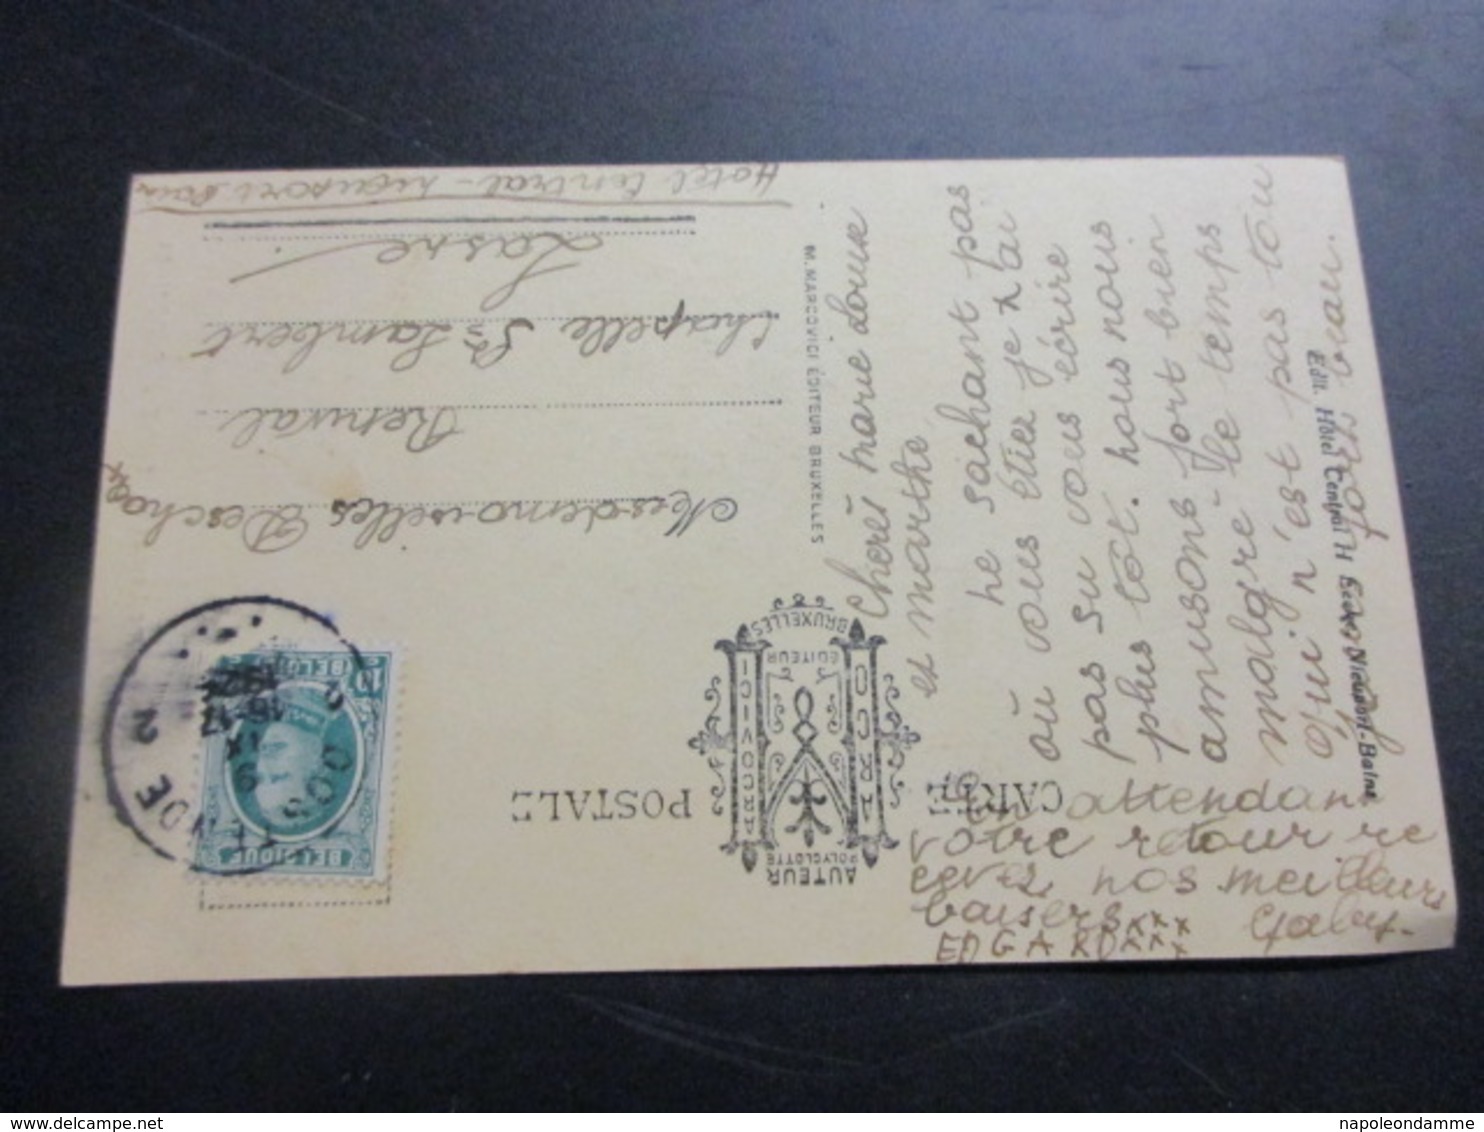 CARTE POSTALE
AUTEUR
POLYGLOTTE
MARCOVICI
ÉDITEUR
BRUXELLES
M. MARCOVICI ÉDITEUR BRUXELLES
Edit. Hôtel Central H Nieuport-Bains
BELGIQUE
BELGIË
10
OOSTENDE
2
16-17
Mesdemoiselles
Renival
Chapelle St Lambert
Lasne
Hotel Central -
Chères marie Louise
et marthe
ne sachant pas
où vous étiez je n'ai
pas su vous écrire
plus tôt. nous nous
amusons fort bien
malgré le temps
qui n'est pas tou
jours beau.
En attendant
votre retour re
cevez nos meilleurs
baisers xxx Gaby.
EDGARD xxx
delcampe.net
napoleondamme